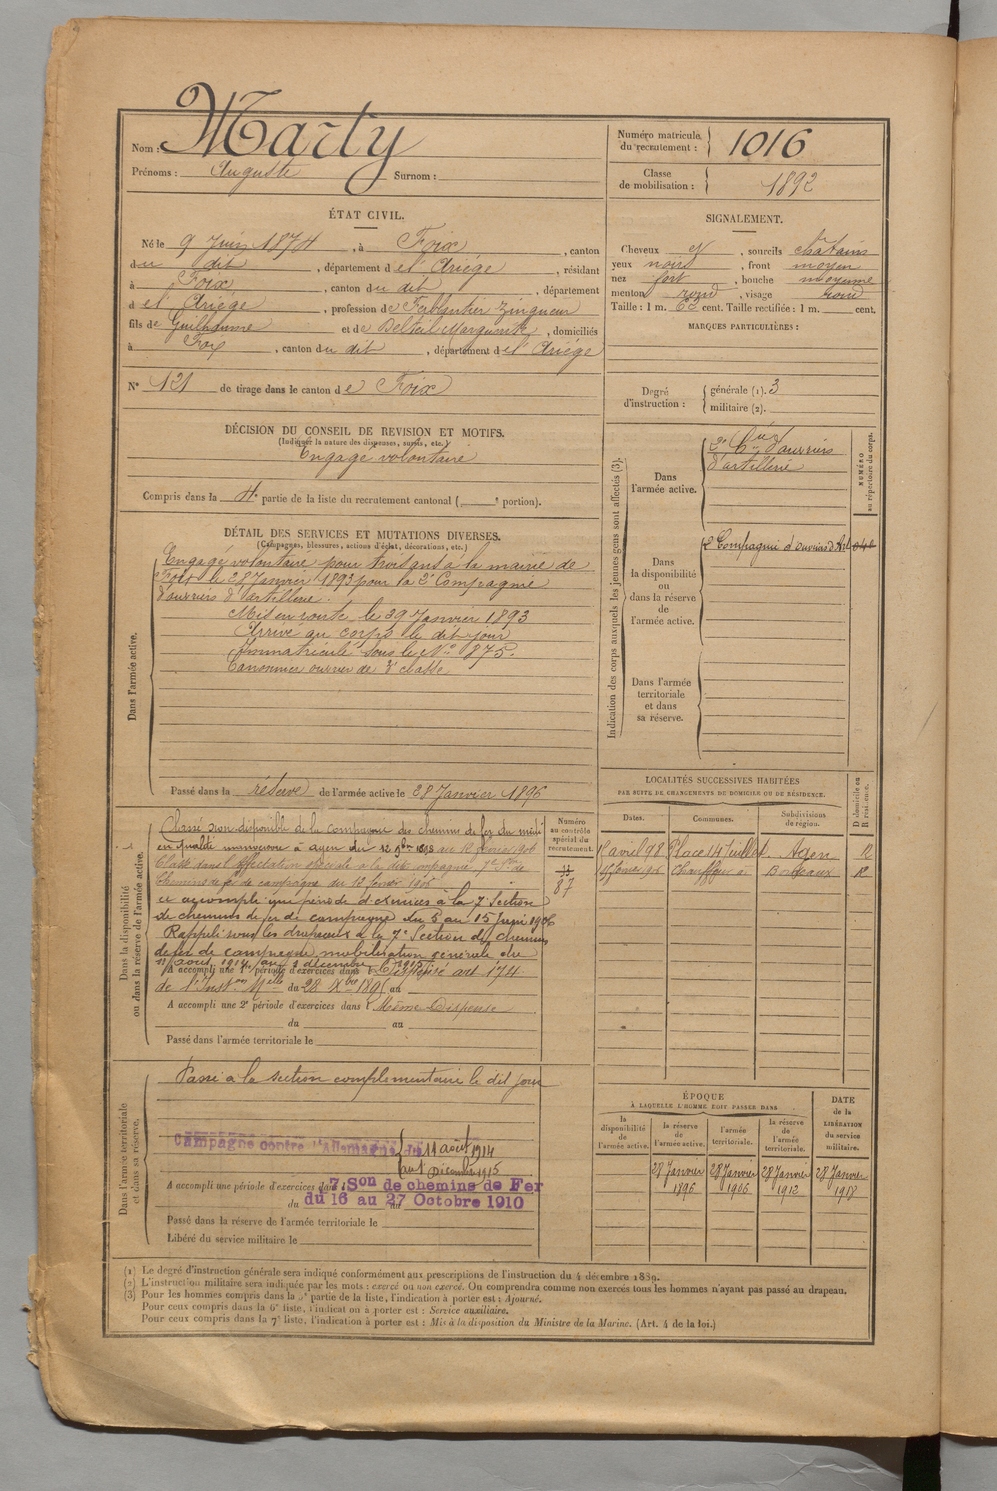 Nom : Marty
Prénoms : Auguste Surnom :
Numéro matricule du recrutement : 1016
Classe de mobilisation : 1892
ÉTAT CIVIL.
Né le 9 Juin 1874, à Foix, canton
du dit, département de l'Ariège, résidant
à Foix, canton du dit, département
de l'Ariège, profession de Ferblantier Zingueur
fils de Guilhaume et de Belteil Marguerite, domiciliés
à Foix, canton du dit, département de l'Ariège
N° 121 de tirage dans le canton de Foix
SIGNALEMENT.
Cheveux et, sourcils châtains
yeux noirs, front moyen
nez fort, bouche moyenne
menton rond, visage rond
Taille : 1 m. 62 cent. Taille rectifiée : 1 m. cent.
MARQUES PARTICULIÈRES :
Degré d'instruction : générale (1). 3
militaire (2).
DÉCISION DU CONSEIL DE REVISION ET MOTIFS.
(Indiquer la nature des dispenses, sursis, etc.)
Engagé volontaire
Compris dans la 4e partie de la liste du recrutement cantonal ( e portion).
DÉTAIL DES SERVICES ET MUTATIONS DIVERSES.
(Campagnes, blessures, actions d'éclat, décorations, etc.)
Dans l'armée active.
Engagé volontaire pour trois ans à la mairie de
Foix le 28 Janvier 1893 pour la 2e Compagnie
d'ouvriers d'artillerie.
Mis en route le 29 Janvier 1893
Arrivé au corps le dit jour
Immatriculé sous le No 1875.
Canonnier ouvrier de 3e classe
Passé dans la réserve de l'armée active le 28 Janvier 1896
Indication des corps auxquels les jeunes gens sont affectés (3).
NUMÉRO au répertoire du corps.
Dans l'armée active.
2e Cie d'ouvriers
d'artillerie
Dans la disponibilité ou dans la réserve de l'armée active.
2e Compagnie d'ouvriers d'Art
Dans l'armée territoriale et dans sa réserve.
Dans la disponibilité ou dans la réserve de l'armée active.
Classé non disponible de la compagnie des chemins de fer du midi
en qualité à Agen du 12 9bre 1898 au 12 février 1906
Classé dans l'affectation spéciale à la dite compagnie 7e Son de
Chemins de fer de campagne du 12 février 1906
a accompli une période d'exercices à la 7e Section
de chemins de fer de campagne du 3 au 15 Juin 1906
Rappelé sous les drapeaux à la 7e Section de chemins
de fer de campagne mobilisation générale du
11 août 1914 au 2 décembre 1915
A accompli une 1re période d'exercices dans Dispensé art 174
de l'Inston Melle du 28 Xbre 1895 au
A accompli une 2e période d'exercices dans Même Dispense
du au
Passé dans l'armée territoriale le
Numéro au contrôle spécial du recrutement.
87
LOCALITÉS SUCCESSIVES HABITÉES
PAR SUITE DE CHANGEMENTS DE DOMICILE OU DE RÉSIDENCE.
Dates. Communes. Subdivisions de région. D domicile ou R résidence.
15 avril 98 Place 14 Juillet Agen R
15 février 906 Bordeaux R
Dans l'armée territoriale et dans sa réserve.
Passé à la section complémentaire le dit jour
Campagne contre l'Allemagne du 11 août 1914
au 1 Décembre 1915
A accompli une période d'exercices dans 7e Son de chemins de Fer
du 16 au 27 Octobre 1910
Passé dans la réserve de l'armée territoriale le
Libéré du service militaire le
ÉPOQUE
À LAQUELLE L'HOMME DOIT PASSER DANS
la disponibilité de l'armée active. la réserve de l'armée active. l'armée territoriale. la réserve de l'armée territoriale. DATE de la LIBÉRATION du service militaire.
28 Janvier 1896 28 Janvier 1906 28 Janvier 1912 28 Janvier 1918
(1) Le degré d'instruction générale sera indiqué conformément aux prescriptions de l'instruction du 4 décembre 1889.
(2) L'instruction militaire sera indiquée par les mots : exercé ou non exercé. On comprendra comme non exercés tous les hommes n'ayant pas passé au drapeau.
(3) Pour les hommes compris dans la 5e partie de la liste, l'indication à porter est : Ajourné.
Pour ceux compris dans la 6e liste, l'indication à porter est : Service auxiliaire.
Pour ceux compris dans la 7e liste, l'indication à porter est : Mis à la disposition du Ministre de la Marine. (Art. 4 de la loi.)